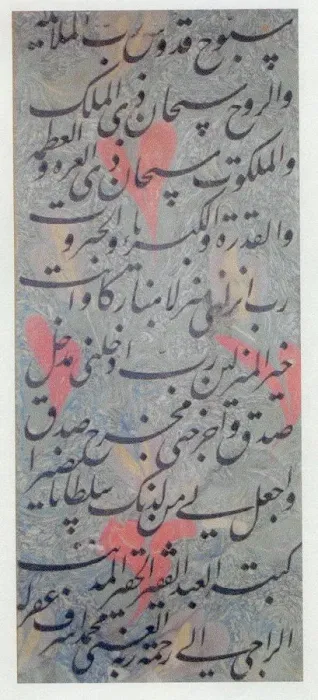 سبوح قدوس رب الملائکة
والروح سبحان ذی الملک
والملکوت سبحان ذی العزة و العظمة
والقدرة والکبریاء والجبروت
رب انزلنی منزلا مبارکا وانت
خیر المنزلین رب ادخلنی مدخل
صدق واخرجنی مخرج صدق
واجعل لی من لدنک سلطانا نصیرا
کتبه العبد الفقیر الحقیر المذنب
الراجی الی رحمة ربه الغنی محمد اشرف غفر له